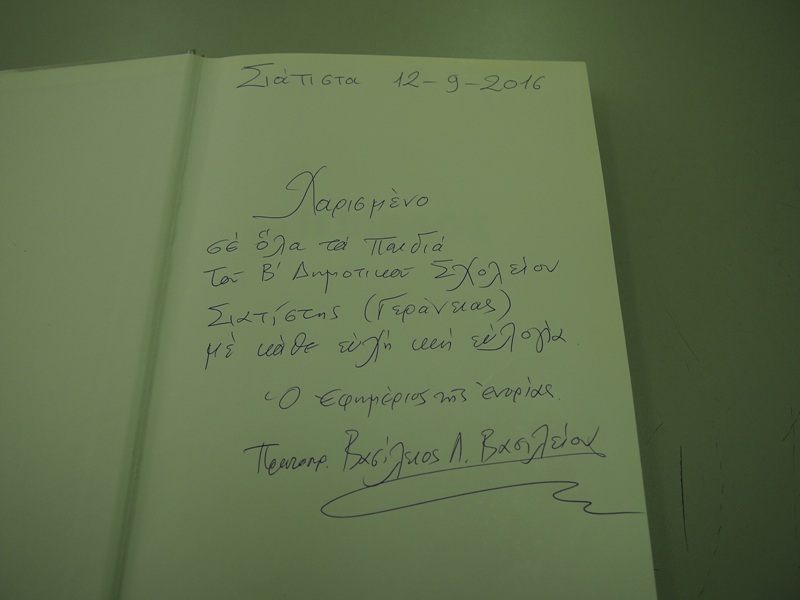 Σιάτιστα 12-9-2016
Χαρισμένο
σέ ὅλα τά Παιδιά
τοῦ Β' Δημοτικοῦ Σχολείου
Σιατίστης (Γεράνειας)
μέ κάθε εὐχή καί εὐλογία.
Ὁ Ἐφημέριος τῆς ἐνορίας.
Πρωτοπρ. Βασίλειος Λ. Βασιλείου